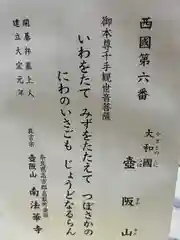 西國第六番
大和國
やまとのくに
壺阪山
御本尊千手観世音菩薩
いわをたて みずをたたえて つぼさかの
にわのいさごも じょうどなるらん
真言宗
奈良県高市郡高取町壺阪
壺阪山 南法華寺
開基 弁基上人
建立 大宝元年